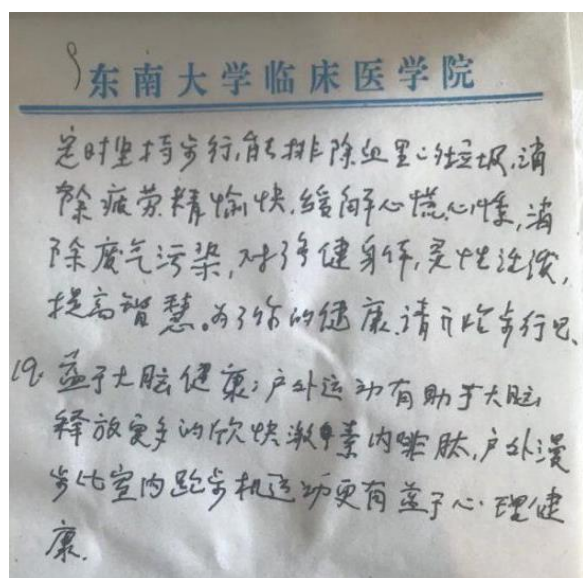 9
东南大学临床医学院
定时坚持步行,能排除血里的垃圾,消
除疲劳,精愉快,缓解心慌心悸,消
除废气污染,对强健身体,灵性活泼,
提高智慧。为了你的健康,请开始步行吧、
19. 益于大脑健康:户外运动有助于大脑
释放更多的欣快激素内啡肽,户外漫
步比室内跑步机运动更有益于心理健
康.